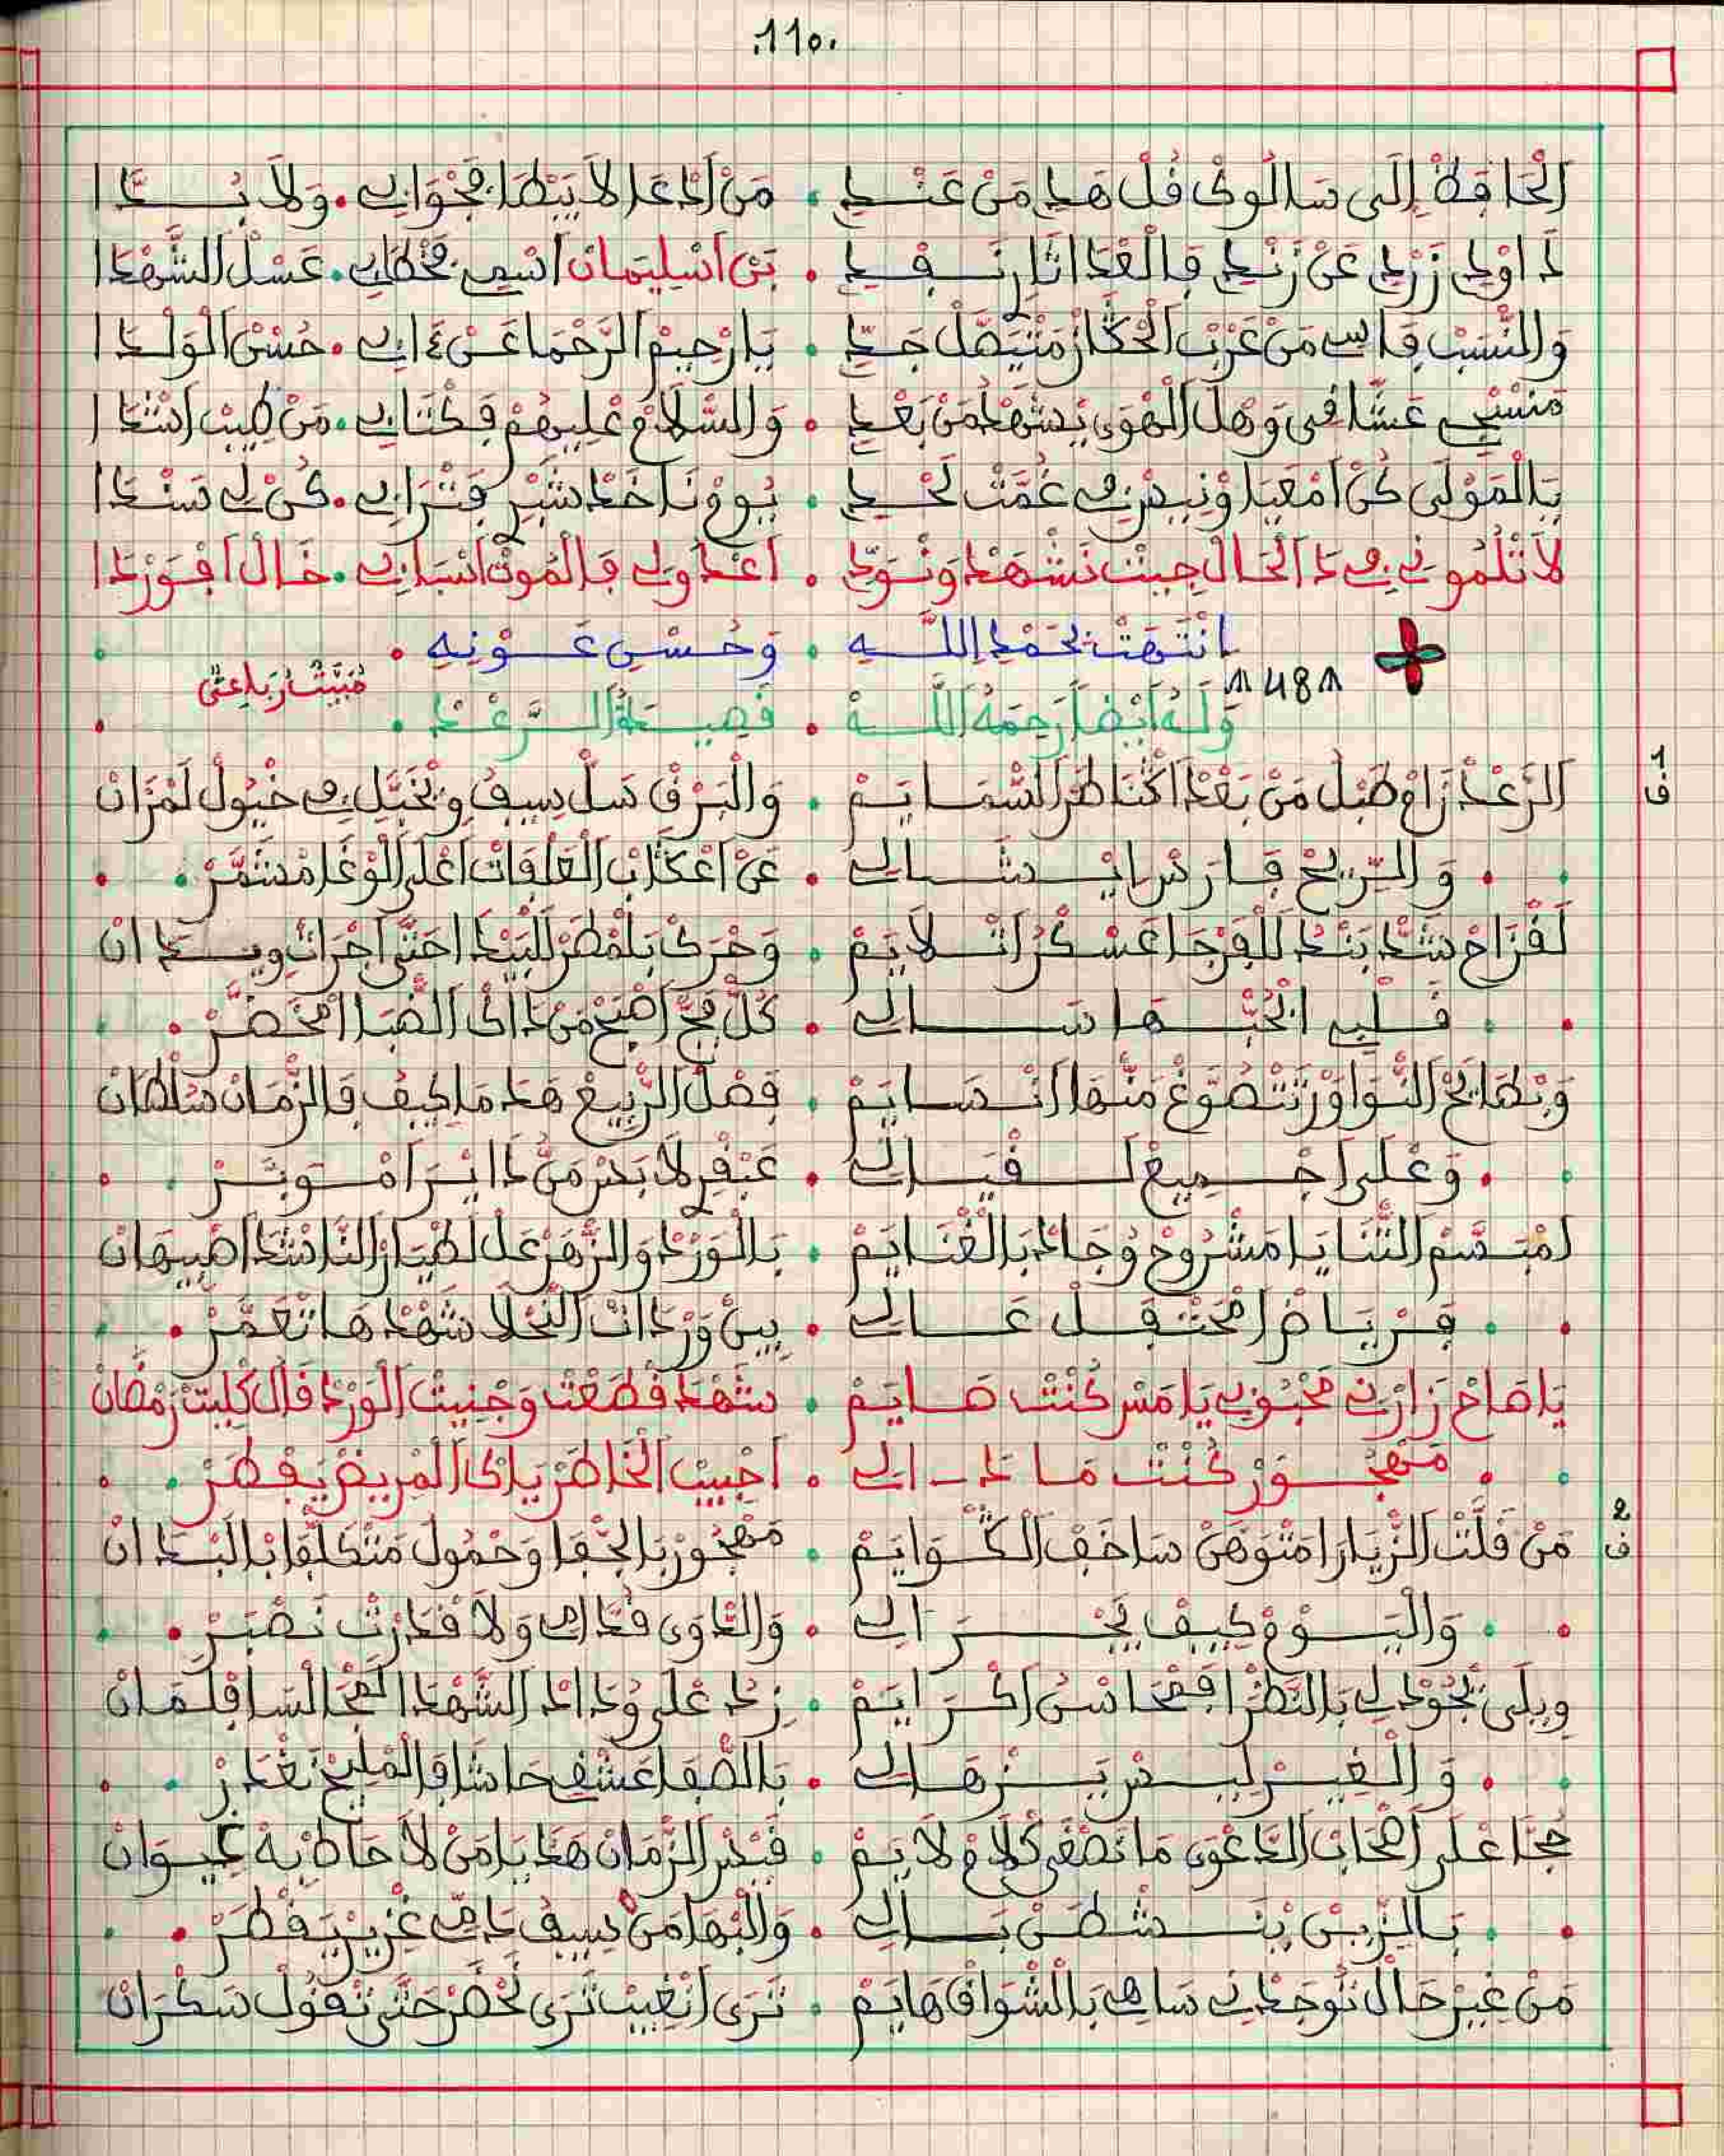 .110.
الْحَافِظْ إِلَى سَالُوكْ قُلْ هَدِ مَنْ عَنْدِ . مَنْ اَدْعَا لاَ يَبْطَا فَجْوَابِي . وَلاَ بُدَّا
دَاوْدِ زَرْدِ عَنْ زَنْدِ فَالْعْدَا ثَارْ نَفْدِ . بَنْ اَسْلِيمَانْ اَسْمِي فَخْطَابِي . عَسْلْ الشَّهْدَا
وَالنّْسَبْ فَاسِي مَنْ عَرْبْ الْحْكَّارْ مَتْيَصَّلْ جَدِّ . يَا رْحِيمْ الرَّحْمَا عَنْ ءَابِي . حُسْنْ الْوَلْدَا
مَنْسْجِي عَشَّاقِي وَهْلْ الْهْوَى يْشَهْدْ مَنْ بَعْدِ . وَالسّْلاَمْ عْلِيهُمْ فَكْتَابِي . مَنْ طِيبْ اَنْدَا
يَا الْمَوْلَى كُنْ اَمْعَيَا وْنِيسْ فِي غُمَّتْ لَحْدِ . يُومْ نَاخَدْ شْبِرْ فَتْرَابِي . كُنْ لِي سَنْدَا
لاَ تْلُمُونِي فِي دَا الْحَالْ جِيتْ نَشْهَدْ وَنْوَدِّ . اَعْدَاوْلِي فَالْمُوتْ اَسْبَابِي . خَالْ اَفْوَرْدَا
انْتَهَتْ بِحَمْدِ اللَّهِ . وَحُسْنِ عَوْنِهِ .
48
مْبَيَّتْ رْبَاعِي
وَلَهُ أَيْضًا رَحِمَهُ اللَّهُ . قَصِيدَةُ الرَّعْدْ .
1 ف
الرَّعْدْ زَامْ طَبْلُ مَنْ بَعْدْ اَكْنَاطَرْ السّْمَايَمْ . وَالْبَرْقْ سَلْ سِيفُ وِتْخَيَّلْ فِي خْيُولْ لَمْزَانْ
وَالرِّيحْ فَارَسْ اِيْشَالِي . عَنْ اَعْكَابْ الْعَلْفَاتْ اَعْلَى الْوْغَا مْشَمَّرْ .
لَقْزَاحْ شَدّْ بَنْدُ لَلْفَرْجَا عَسْكْرُ اتْلاَيَمْ . وَحْرَكْ بَلْمْطَرْ لَلْبَيْدَا حَتَّى اَجْرَاتْ وِيدَانْ
قَلْبِي ابْحُبّْهَا سَالِي . كُلّْ فَجّْ اَصْبَحْ مَنْ دَاكْ الصّْبَا اَمْخَضَّرْ .
وَبْطَايَحْ النّْوَاوَرْ تَتْضَوَّعْ مَنْهَا اَنْسَايَمْ . فَصْلْ الرّْبِيعْ هَدَا مَا كِيفُ فَالزّْمَانْ سُلْطَانْ
وَعْلَى اَجْمِيعْ لَقْيَالِي . عَبْقَرِ لاَبَسْ مَنْ دَايْرَا مْوَبَّرْ .
اَمْبَسَّمْ الثّْنَايَا مَشْرُوحْ وُجَادْ بَالْغْنَايَمْ . بَالْوَرْدْ وَالزّْهَرْ عَلْ لَطْيَارْ النَّاشْدَا اَصْبِيهَانْ
فَرْيَاضْ اَمْحَتْفَلْ عَالِي . بِينْ وَرْدَاتْ النّْحْلاَ شَهْدْهَا تْعَمَّرْ .
يَا صَاحْ زَارْنِي مَحْبُوبِي يَامَسْ كُنْتْ صَايَمْ . شَهْدَ قْطَعْتْ وَجْنِيتْ الْوَرْدْ قَالْ كْلِيتْ رَمْضَانْ
مَهْجُورْ كُنْتْ مَادَالِي . اَجْبِيتْ الْخَاطَرْ يَاكْ الْمْرِيضْ يَفْطَرْ .
2 ف
مَنْ قَلَّتْ الزّْيَارَا مَتْوَهَّنْ سَاخَفْ الْكْوَايَمْ . مَهْجُورْ بَالْجْفَا وَحْمُولْ مَتْكَلّْفَا بَالْبْدَانْ
وَالْيُومْ كِيفْ يَجْرَالِي . وَالدَّاوِي قُدَّامِي وَلاَ قْدَرْتْ نَصْبَرْ .
وِيلَى تْجُودْ لِي بَالنَّظْرَا فَمْحَاسْنُ اَكْرَايَمْ . زِدْ عْلَى وْدَادْ الشّْهْدَا الْعَجْ السَافَلْمَانْ
وَالْغِيرْ لِيسْ يَزْهَالِي . بَالصّْفَا عَشْقِي حَاشَا فَالْمْلِيحْ نَغْدَرْ .
حُجَّا عْلَى اَصْحَابْ الدَّعْوَى مَا نَصْغَى كْلاَمْ لاَيَمْ . قَبْسْ الزّْمَانْ هَدَا يَا مَنْ لاَ حَاطْ بِهْ عِيوَانْ
بَالزِّينْ يَنْشْطَنْ بَالِي . وَالْبْهَا مَنْ سِيفُ دَمِّي غْزِيرْ يَقْطَرْ .
مَنْ غِيرْ حَالْ تُوجَدْنِي سَاهِي بَالشّْوَاقْ هَايَمْ . تَرَى اَنْغِيبْ تَرَى نَحْضَرْ حَتَّى تْقُولْ سَكْرَانْ